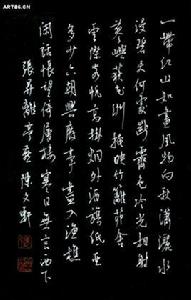 ART86.CN
一帶江山如畫風物向秋瀟灑水
浸碧天何處斷霽色冷光相射
蓼嶼荻花洲掩映竹籬茅舍
雲際客帆高掛烟外酒旗低亞
多少六朝興廢事盡入漁樵
閑話悵望倚層樓寒日無言西下
張昇離亭燕 陳文